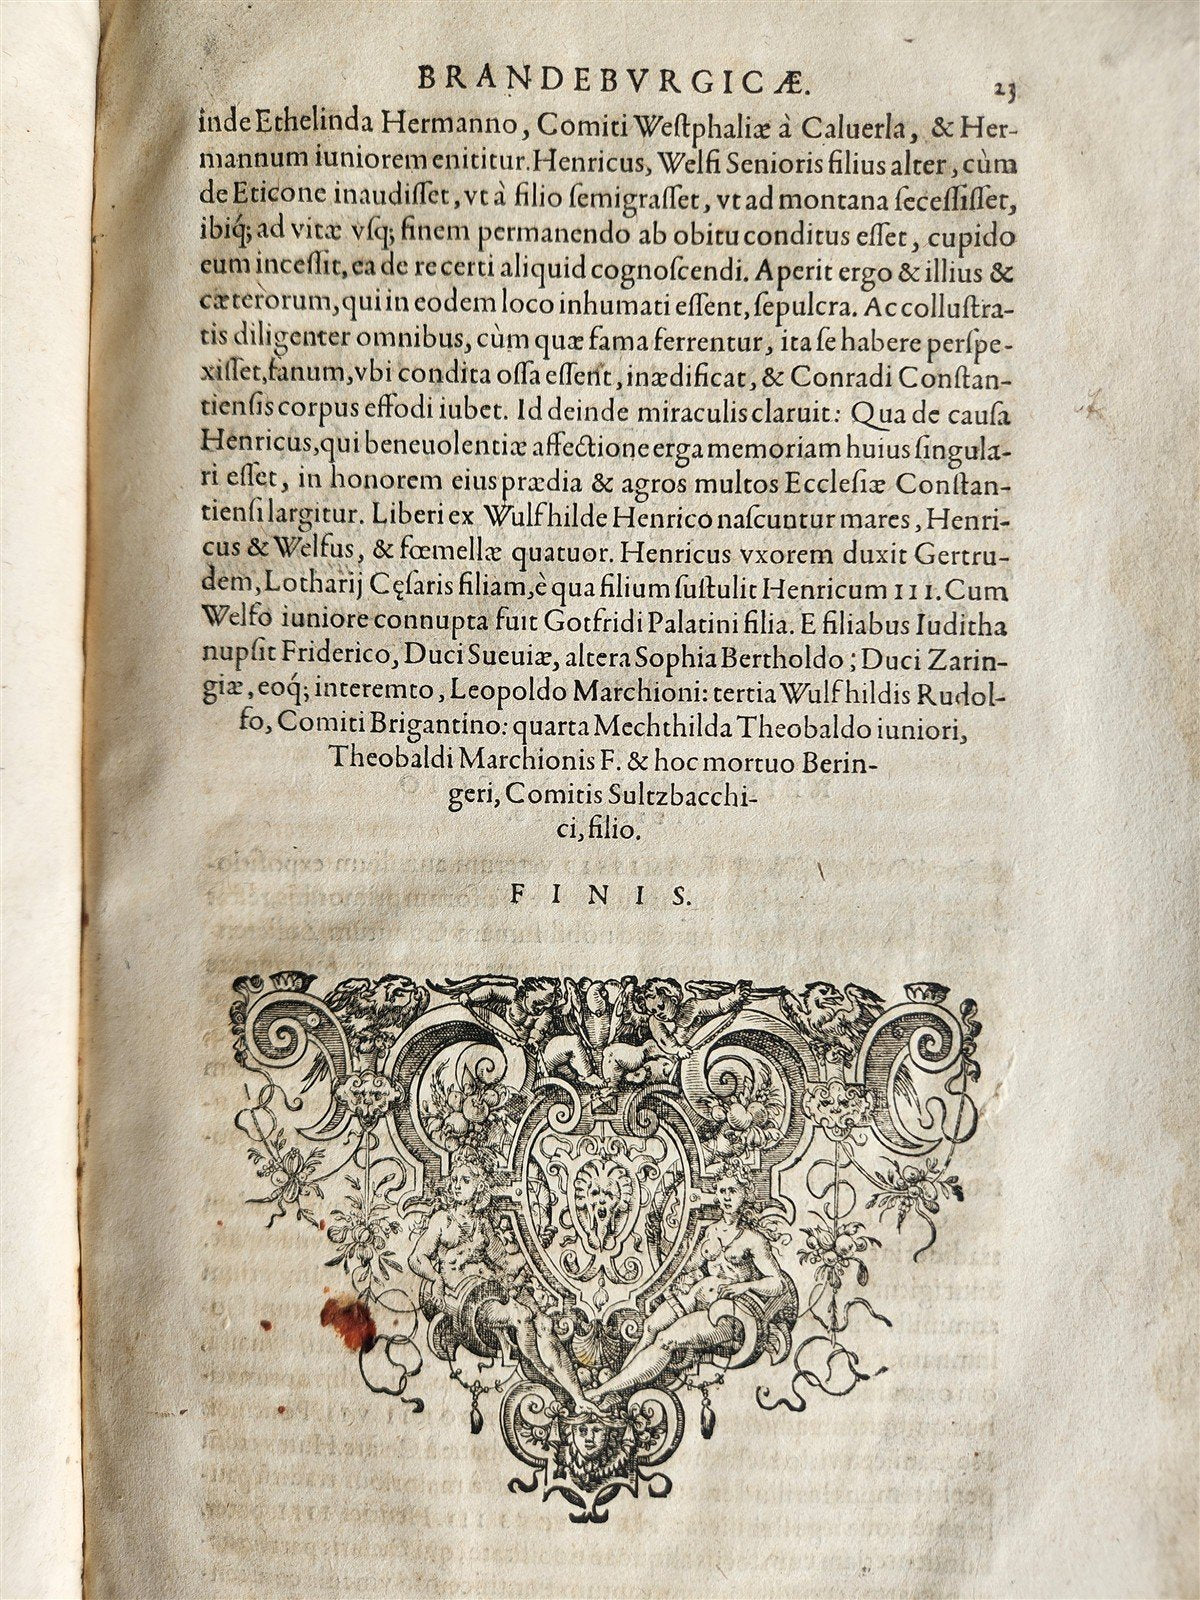 BRANDEBVRGICÆ. 23
inde Ethelinda Hermanno, Comiti Weſtphaliæ à Caluerla, & Her-
mannum iuniorem enititur. Henricus, Welfi Senioris filius alter, cùm
de Eticone inaudiſſet, vt à filio ſemigraſſet, vt ad montana ſeceſſiſſet,
ibiq́; ad vitæ vſq; finem permanendo ab obitu conditus eſſet, cupido
eum inceſſit, ea de re certi aliquid cognoſcendi. Aperit ergo & illius &
cæterorum, qui in eodem loco inhumati eſſent, ſepulcra. Ac colluſtra-
tis diligenter omnibus, cùm quæ fama ferrentur, ita ſe habere perſpe-
xiſſet, fanum, vbi condita oſſa eſſent, inædificat, & Conradi Conſtan-
tienſis corpus effodi iubet. Id deinde miraculis claruit: Qua de cauſa
Henricus, qui beneuolentiæ affectione erga memoriam huius ſingula-
ri eſſet, in honorem eius prædia & agros multos Eccleſiæ Conſtan-
tienſi largitur. Liberi ex Wulfhilde Henrico naſcuntur mares, Henri-
cus & Welfus, & fœmellæ quatuor. Henricus vxorem duxit Gertru-
dem, Lotharij Cęſaris filiam, è qua filium ſuſtulit Henricum III. Cum
Welfo iuniore connupta fuit Gotfridi Palatini filia. E filiabus Iuditha
nupſit Friderico, Duci Sueuiæ, altera Sophia Bertholdo; Duci Zarin-
giæ, eoq́; interemto, Leopoldo Marchioni: tertia Wulfhildis Rudol-
fo, Comiti Brigantino: quarta Mechthilda Theobaldo iuniori,
Theobaldi Marchionis F. & hoc mortuo Berin-
geri, Comitis Sultzbacchi-
ci, filio.
FINIS.